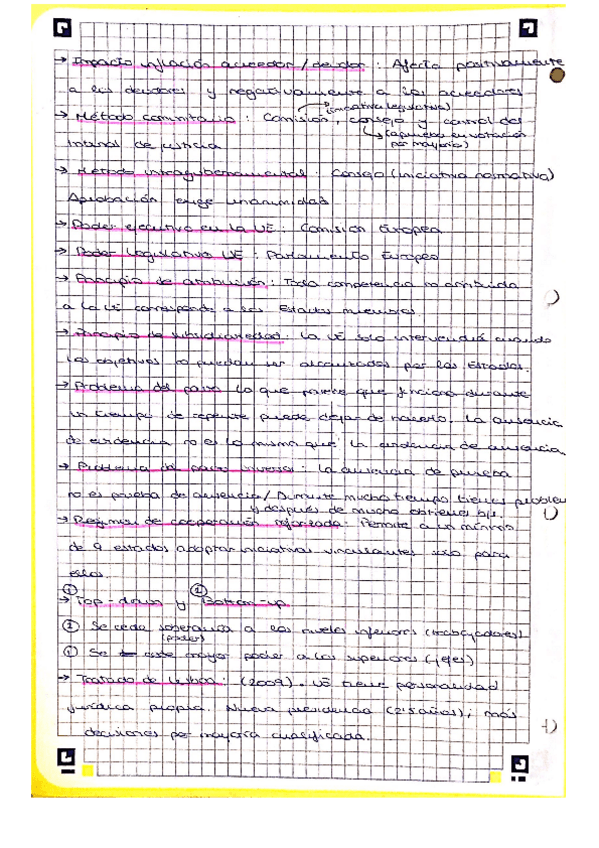 → Impacto inflación acreedor / deudor : Afecta positivamente
a los deudores y negativamente a los acreedores
(iniciativa legislativa)
→ Método comunitario : Comisión, consejo y control del
(aprueba en votación
por mayoría)
tribunal de justicia
→ Método intragubernamental : Consejo (iniciativa normativa)
Aprobación exige unanimidad
→ Poder ejecutivo en la UE : Comisión Europea
→ Poder Legislativo UE : Parlamento Europeo
→ Principio de atribución : Toda competencia no atribuida
a la UE corresponde a los Estados miembros.
→ Principio de subsidiariedad : La UE solo intervendrá cuando
los objetivos no puedan ser alcanzados por los Estados.
→ Problema del pavo Lo que parece que funciona durante
un tiempo de repente puede dejar de hacerlo. La ausencia
de evidencia no es lo mismo que la evidencia de ausencia
→ Problema del pavo inverso : La ausencia de prueba
no es prueba de ausencia / Durante mucho tiempo tienes problem
y después de mucho obtienes
→ Régimen de cooperación reforzada : Permite a un mínimo
de 9 estados adoptar iniciativas vinculantes solo para
ellos.
→ Top-down y Bottom-up
Se cede soberanía a los niveles inferiores (trabajadores)
(poder)
Se cede mayor poder a los superiores (jefes)
→ Tratado de Lisboa : (2009). UE tiene personalidad
jurídica propia. Nueva presidencia (2'5 años), más
decisiones por mayoría cualificada.